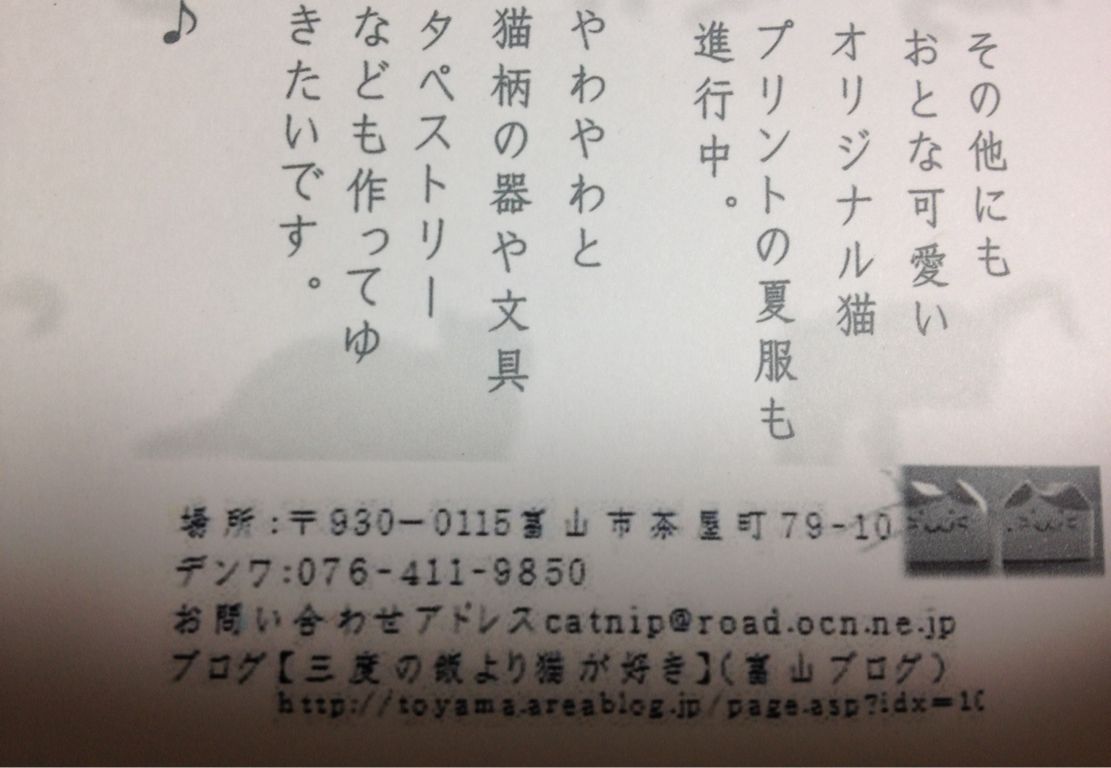 その他にも
おとな可愛い
オリジナル猫
プリントの夏服も
進行中。
やわやわと
猫柄の器や文具
タペストリー
なども作ってゆ
きたいです。
♪
場所:〒930-0115富山市茶屋町79-10
デンワ:076-411-9850
お問い合わせアドレスcatnip@road.ocn.ne.jp
ブログ【三度の飯より猫が好き】(富山ブログ)
http://toyama.areablog.jp/page.asp?idx=10